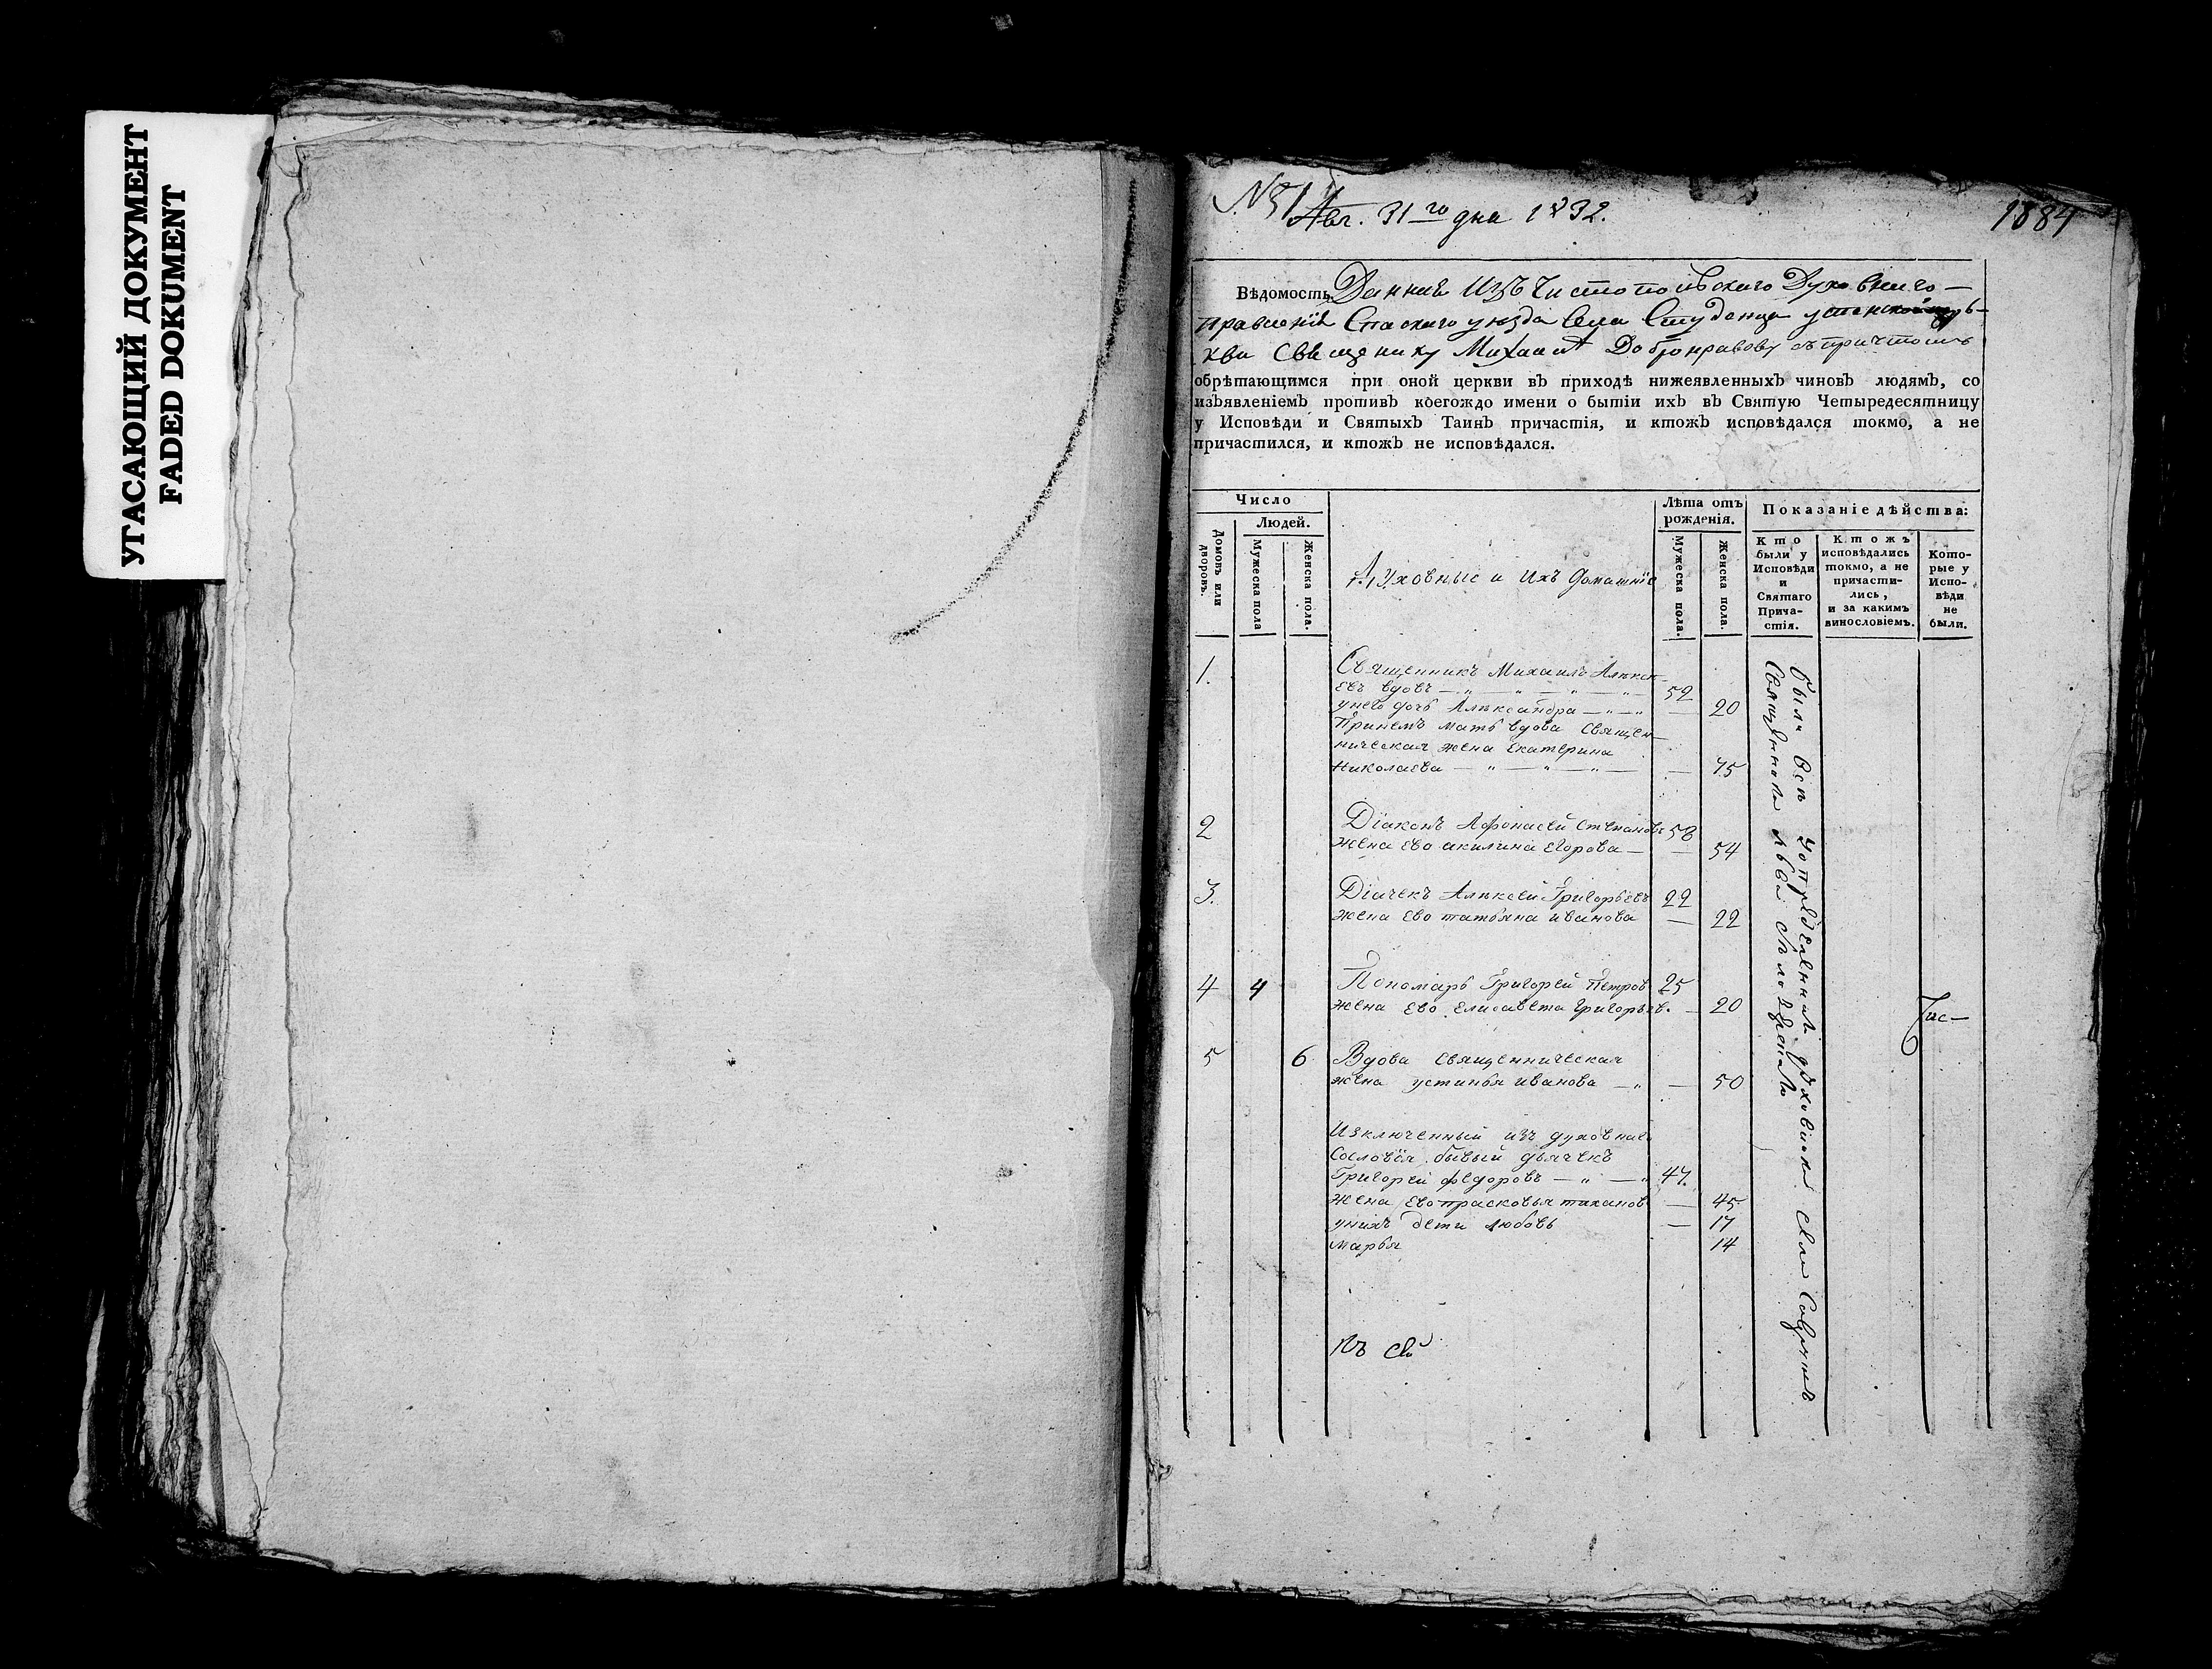 УГАСАЮЩИЙ ДОКУМЕНТ
FADED DOKUMENT
Авг. 31го дня 1832.
1884
Вѣдомость Данная Изъ Чистопольскаго Духовнаго
правленія Спаскаго уѣзда Села Студенца
кви Священику Михаилѣ Добронравову съ причтомъ
обрѣтающимся при оной церкви въ приходѣ нижеявленныхъ чиновъ людямъ, со
изъявленіемъ противъ коегождо имени о бытіи ихъ въ Святую Четыредесятницу
у Исповѣди и Святыхъ Таинъ причастія, и ктожъ исповѣдался токмо, а не
причастился, и ктожъ не исповѣдался.
Число
Людей.
Домовъ или дворовъ.
Мужеска пола
Женска пола.
Духовные и Ихъ домашніе
Лѣта отъ рожденія.
Мужеска пола.
Женска пола.
Показаніе дѣйства:
Кто были у Исповѣди и Святаго Причастія.
Ктожъ исповѣдались токмо, а не причастились, и за какимъ винословіемъ.
Которые у Исповѣди не были.
1. Священникъ Михаилъ Алексѣ-
евъ вдовъ — „ — „ — „ — 52
унего дочь Александра — „ — „ — 20
Принемъ мать вдова Священ-
ническая жена Екатерина
Николаева — „ — „ — „ — — 75
2 Діаконъ Афонасей Степановъ 58
жена ево акилина Егорова — — 54
3. Діачекъ Алексей Григорьевъ 22
жена Ево татьяна иванова — 22
4 4 Пономарь Григорей Петровъ 25
жена Ево Елисавета Григорьев. — 20
5 6 Вдова священническая
жена устинья иванова — „ — 50
Изключенный изъ духовнаго
Сословія бывый дьячекъ
Григорей федоровъ — „ — „ 47.
жена Ево прасковья — 45
унихъ дети любовь — 17
марья 14
Были Всѣ